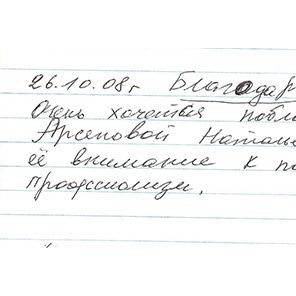 26.10.08г Благодар
Очень хочется побла
Арсеновой Наталь
её внимание к п
проффессионализм.